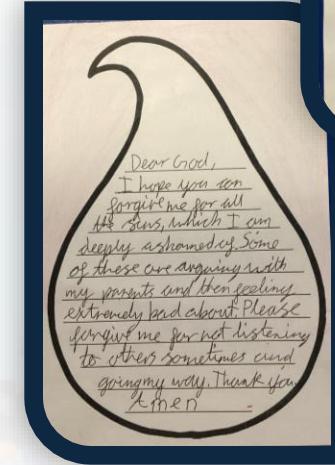 Dear God,
I hope you can
forgive me for all
the sins, which I am
deeply ashamed of. Some
of these are arguing with
my parents and then feeling
extremely bad about. Please
forgive me for not listening
to others sometimes and
going my way. Thank you.
Amen